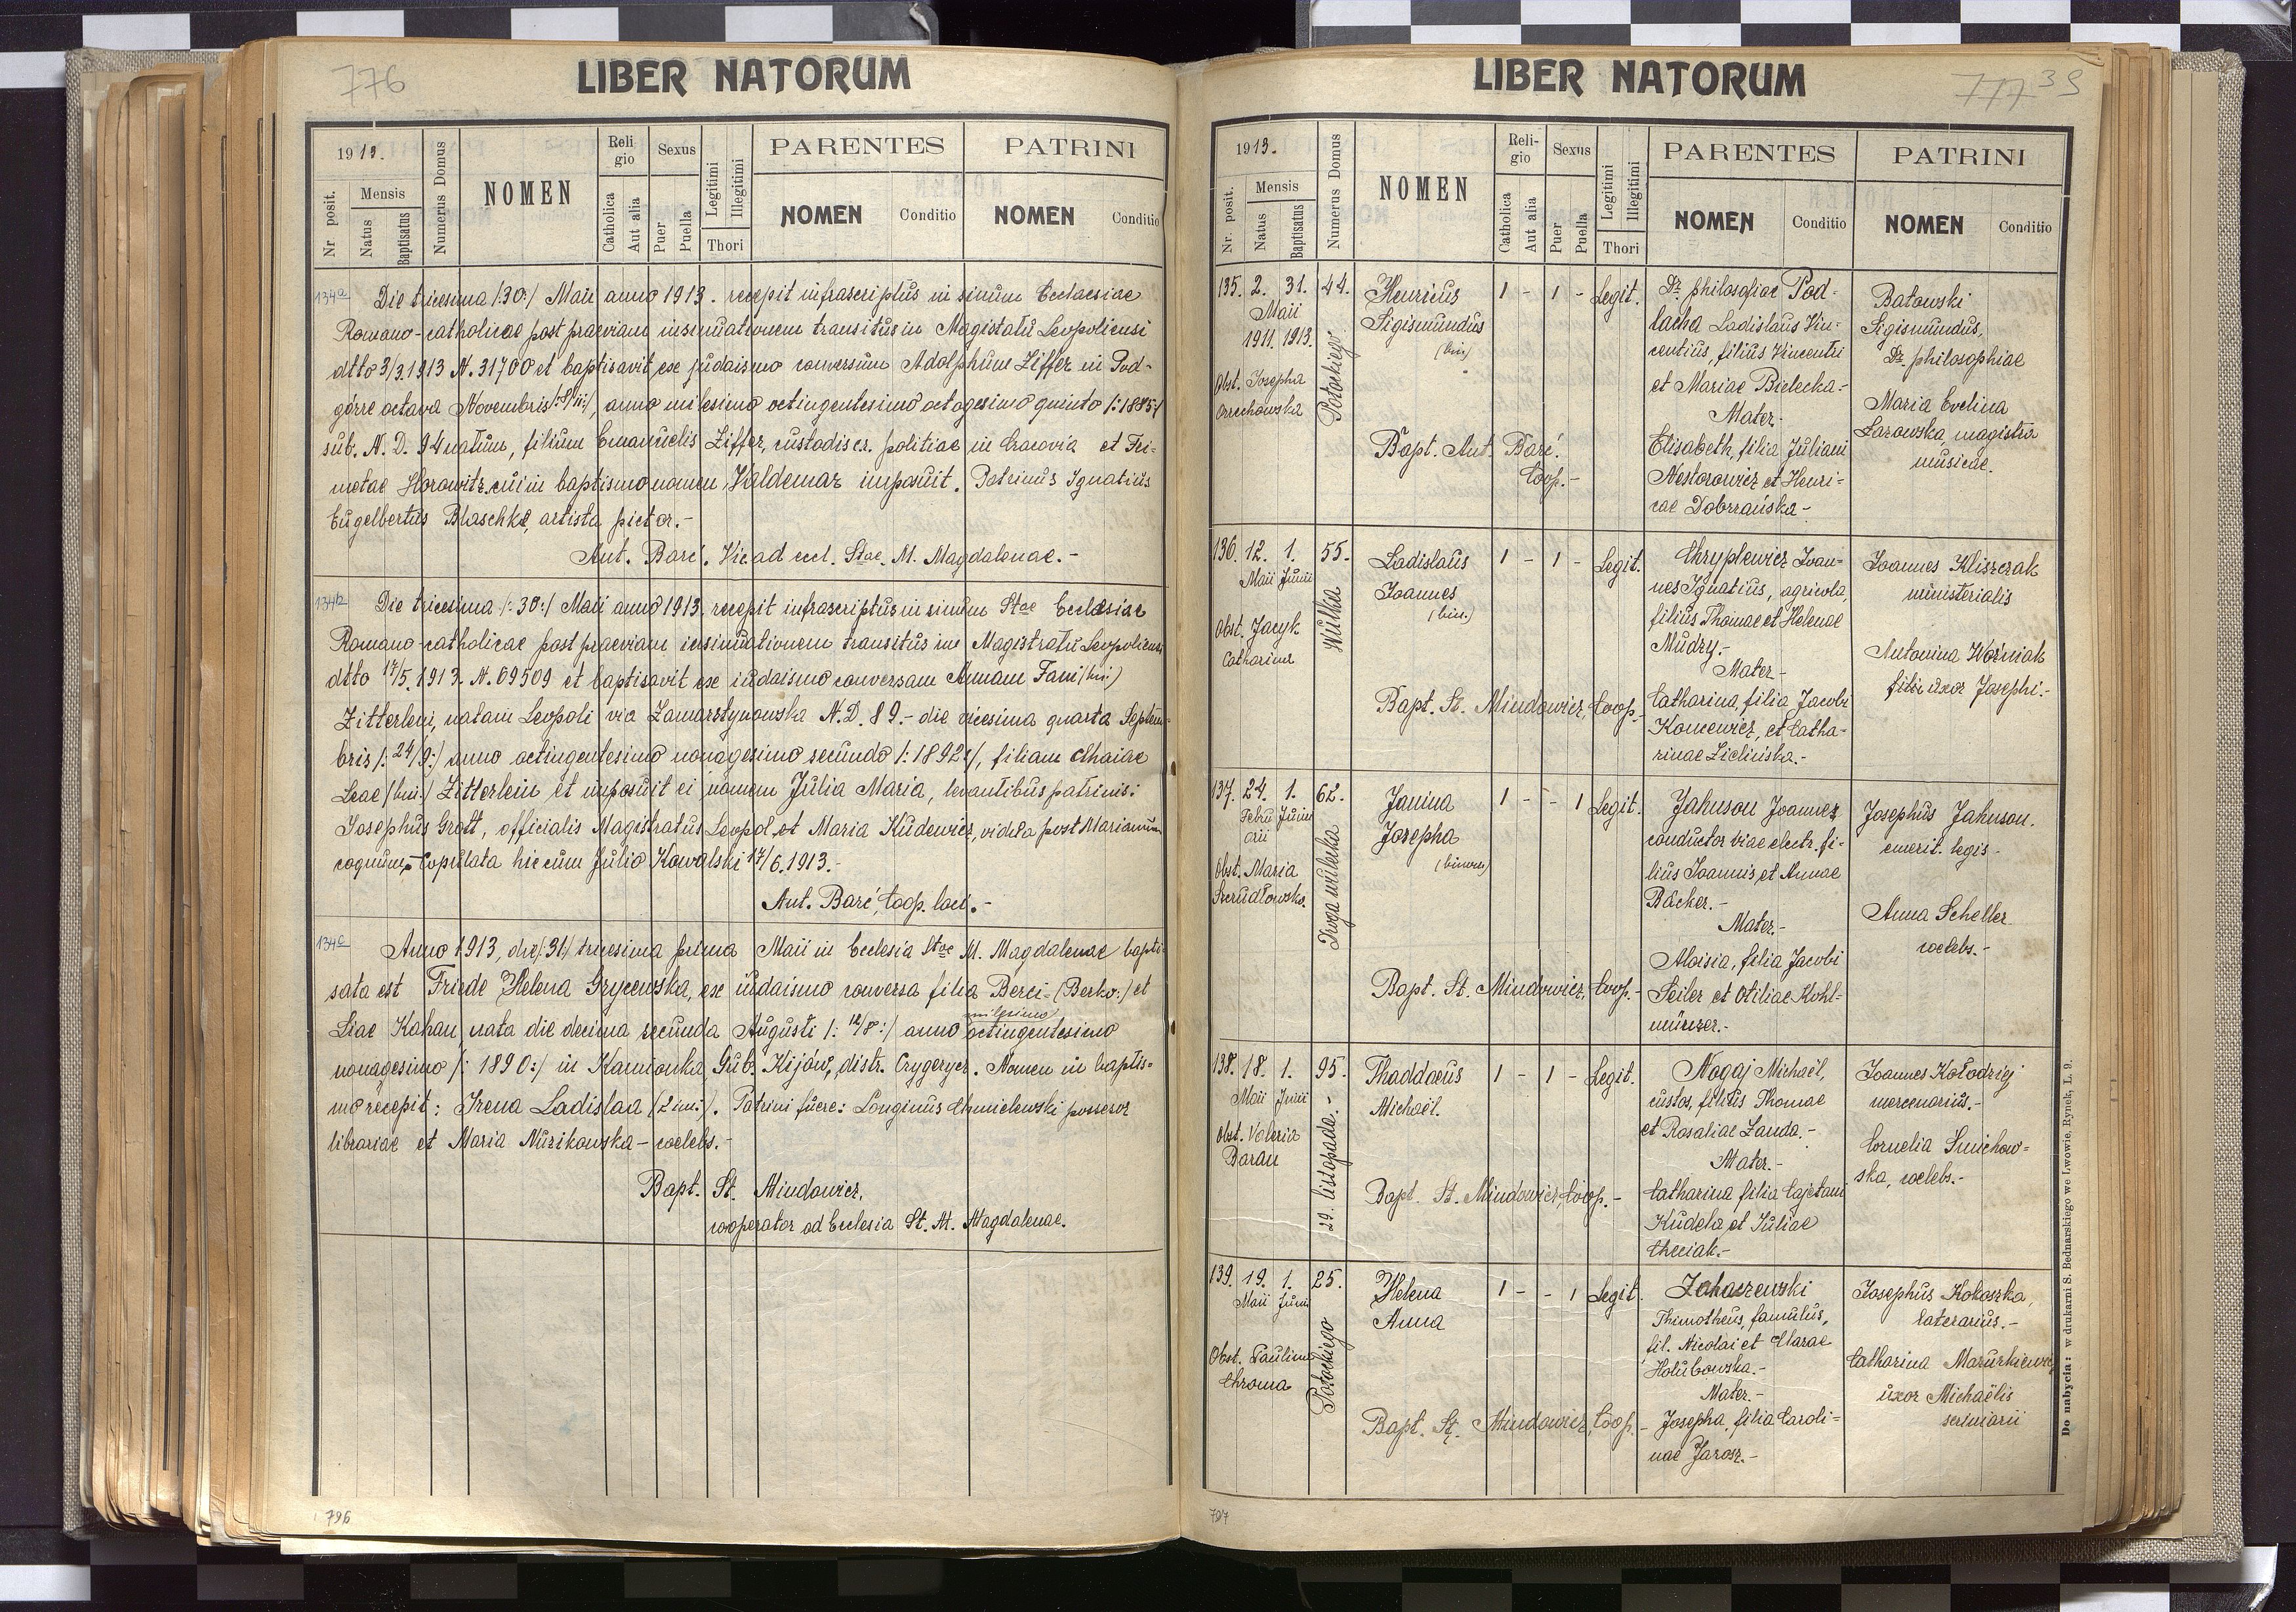 776
LIBER NATORUM
1913.
Nr. posit.
Mensis
Natus
Baptisatus
Numerus Domus
NOMEN
Religio
Catholica
Aut alia
Sexus
Puer
Puella
Legitimi
Illegitimi
Thori
PARENTES
NOMEN
Conditio
PATRINI
NOMEN
Conditio
134a Die tricesima /:30:/ Maii anno 1913. recepit infrascriptus in sinum Ecclaesiae
Romano-catholicae post praeviam insinuationem transitus in Magistatu Leopoliensi
dtto 3/3.1913 N. 31700 et baptisavit ex judaismo conversum Adolphum Ziffer in Pod-
górze octava Novembris /:8/11:/, anno milesimo octingentesimo octogesimo quinto /:1885:/
sub. N. D. 94 natum, filium Emanuelis Ziffer, custodis cr. politiae in Cracovia et Fri-
metae Horowitz, cui in baptismo nomen Valdemar imposuit. Patrinus Ignatius
Engelbertus Blaschke, artista pictor.-
Ant. Baré. Vic. ad eccl. Stae. M. Magdalenae.-
134b Die tricesima /:30:/ Maii anno 1913. recepit infrascriptus in sinum Stae Ecclesiae
Romano-catholicae post praeviam insinuationem transitus in Magistratu Leopoliensi
dtto 17/5. 1913. N. 69509 et baptisavit ex iudaismo conversam Annam Fani (bin.)
Zitterlein, natam Leopoli via Zamarstynowska N.D. 89.- die vicesima quarta Septem-
bris /:24/9:/ anno octingentesimo nonagesimo secundo /:1892:/, filiam Chaiae
Leae /bin./ Zitterlein et imposuit ei nomen Julia Maria, levantibus patrinis:
Josephus Grott, officialis Magistratus Leopol. et Maria Kudewicz, vidua post Marianum
cognum.- Copulata hic cum Julio Kowalski 17/6.1913.-
Ant. Baré, Coop. loci.-
134c Anno 1913, die /:31/ tricesima prima Maii in Ecclesia Stae M. Magdalenae bapti-
sata est Friede Helena Grycewska, ex iudaismo conversa filia Berci- (Berko:) et
milesimo
Liae Kahan, nata die decima secunda Augusti /:12/8:/ anno octingentesimo
nonagesimo /:1890:/ in Kamionka, Gub. Kijów, distr. Czygerycz. Nomen in baptis-
mo recepit: Irena Ladislaa (2 imi). Patrini fuere: Longinus Chmielewski possesor
librariae et Maria Nurikowska - coelebs.-
Bapt. St. Mindowicz,
cooperator ad Ecclesia St. M. Magdalenae.
796
777 39
LIBER NATORUM
1913.
Nr. posit.
Mensis
Natus
Baptisatus
Numerus Domus
NOMEN
Religio
Catholica
Aut alia
Sexus
Puer
Puella
Legitimi
Illegitimi
Thori
PARENTES
NOMEN
Conditio
PATRINI
NOMEN
Conditio
135. 2. 31. 44.
Maii
1911. 1913.
Obst. Josepha
Orzechowska
Potockiego
Henricus
Sigismundus
(bin)
1 - 1 - Legit.
Bapt. Ant. Baré.
Coop.-
Dr. philosofiae Pod-
lacha Ladislaus Vin-
centius, filius Vincenti
et Mariae Bielecka-
Mater-
Elisabeth, filia Juliani
Nestorowicz et Henri-
cae Dobrzańska-
Batowski
Sigismundus,
Dr. philosophiae
Maria Evelina
Larowska, magistra
musicae.
136. 12. 1. 55.
Maii Junii
Obst. Jacyk
Catharina
Wulka
Ladislaus
Joannes
(bin.)
1 - 1 - Legit.
Bapt. St. Mindowicz, Coop.-
Chryplewicz Joan-
nes Ignatius, agricola,
filius Thomae et Helenae
Mudry.-
Mater-
Catharina, filia Jacobi
Koncewicz, et Catha-
rinae Zielińska.-
Joannes Kliszczak
ministerialis
Antonina Woźniak
uxor Josephi.-
137. 24. 1. 62.
Februarii Junii
Obst. Maria
Szrudłowska.
Droga wulecka
Janina
Josepha
(binom)
1 - - 1 Legit.
Bapt. St. Mindowicz, Coop.-
Jahnson Joannes
conductor viae electr. fi-
lius Joannis, et Annae
Bäcker.-
Mater.-
Aloisia, filia Jacobi
Seiler et Otiliae Kohl-
münzer.-
Josephus Jahnson.
emerit. legis-
Anna Scheller
coelebs.-
138. 18. 1. 95.
Maii Junii
Obst. Valeria
Baran
29. listopada.-
Thaddaeus
Michaël.
1 - 1 - Legit.
Bapt. St. Mindowicz, Coop.-
Nogaj Michaël,
custos, filius Thomae
et Rosaliae Landa.-
Mater.-
Catharina filia Cajetani
Kudela et Juliae
Checiak.-
Joannes Kołodziej
mercenarius.-
Cornelia Smichow-
ska, coelebs.-
139. 19. 1. 25.
Maii Junii
Obst. Paulina
Chroma
Potockiego
Helena
Anna
1 - - 1 Legit.
Bapt. St. Mindowicz, Coop.-
Zahaczewski
Thimotheus, famulus,
fil. Nicolai et Clarae
Holubowska.-
Mater.-
Josepha, filia Caroli-
nae Jarosz.-
Josephus Kokoszka,
laterarius.-
Catharina Mazurkiewicz
uxor Michaëlis
serviarii
Do nabycia: w drukarni S. Bednarskiego we Lwowie, Rynek, L. 9.
797